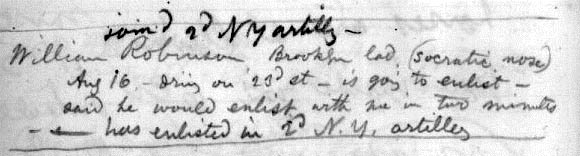 join'd 2d N Y artilly —
William Robinson Brooklyn lad (Socratic nose)
Aug 16 — driv on 23d st — is goig to enlist —
said he would enlist with me in two minutes
— has enlisted in 2d N. Y. artillery